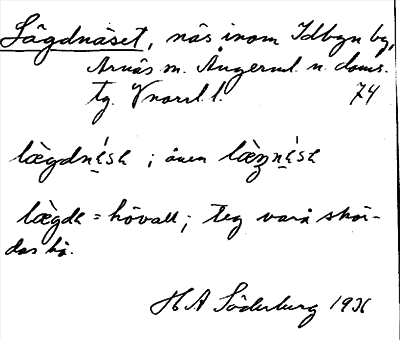 Lägdnäset, näs inom Idbyn by,
Arnäs sn. Ångerml. n. doms.
tg. Vnorrl. l. 74
lægdnésе ; även læŋnésе
lægde = hövall; teg varå skör-
das hö.
H A Söderberg 1936